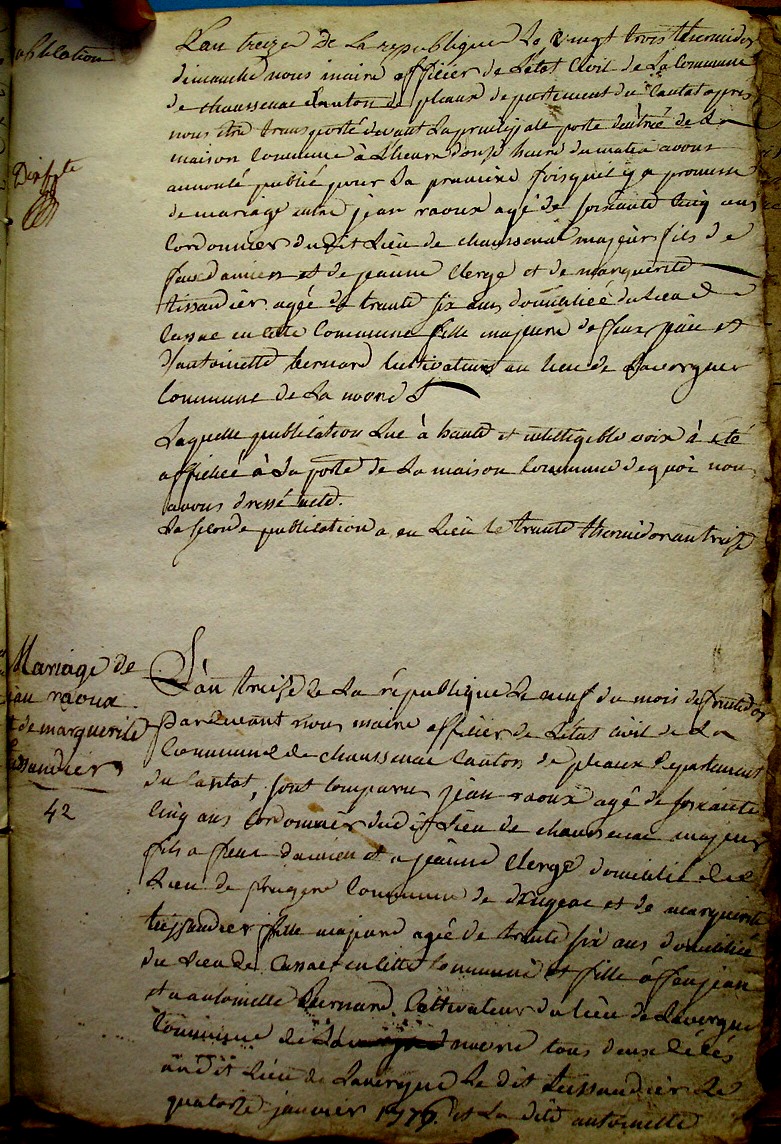 publication
L'an treize de la republique le vingt trois thermidor
dimanche nous maire officier de l'état civil de la commune
de chaussenac canton de pleaux departement du Cantal apres
nous être transporté devant la principale porte d'entrée de la
maison commune à l'heure d'onze heure du matin avons
annoncé publié pour la premiere fois qu'il y a promesse
de mariage entre jean raoux agé de soixante cinq ans
Cordonnier dudit Lieu de chaussenac majeur fils de
feu damien et de jeanne Clerge et de marguerite
tissandier agée de trante six ans domiciliée du lieu de
Cussac en cette Commune fille majeure de feu jean et
d'antoinette bernard Cultivateurs au lieu de Lavergne
Commune de La
Laquelle publication lue à haute et intelligible voix à été
affichée à la porte de la maison Commune de quoi nous
avons dressé acte.
La seconde publication a eu Lieu le trante thermidor an treize
Mariage de
jean raoux
et de marguerite
tissandier
42
L'an treize de la république le neuf du mois de fructidor
Pardevant nous maire officier de l'état civil de La
Commune de chaussenac Canton de pleaux departement
du Cantal, sont comparus jean raoux agé de soixante
cinq ans Cordonnier dudit Lieu de chaussenac majeur
fils a feu damien et a jeanne Clerge domicilié de
Lieu de Commune de drugeac et de marguerite
teissandier fille majeure agée de trante six ans domiciliée
du Lieu de Cussac en cette Commune et fille à feu jean
et a antoinette Bernard Cultivateurs du lieu de Lavergne
Commune de tous deux
audit Lieu de Lavergne Le dit teissandier Le
quatorze janvier 1776 et La dite antoinette